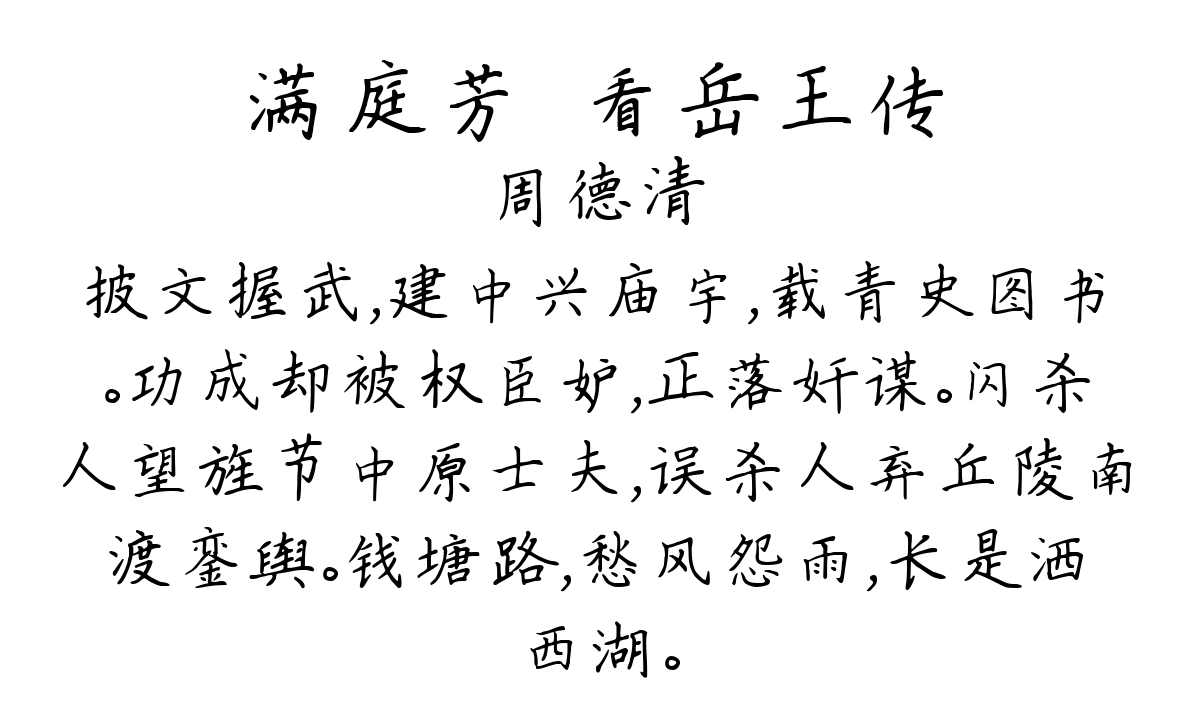 满庭芳 看岳王传
周德清
披文握武,建中兴庙宇,载青史图书
。功成却被权臣妒,正落奸谋。闪杀
人望旌节中原士夫,误杀人弃丘陵南
渡銮舆。钱塘路,愁风怨雨,长是洒
西湖。